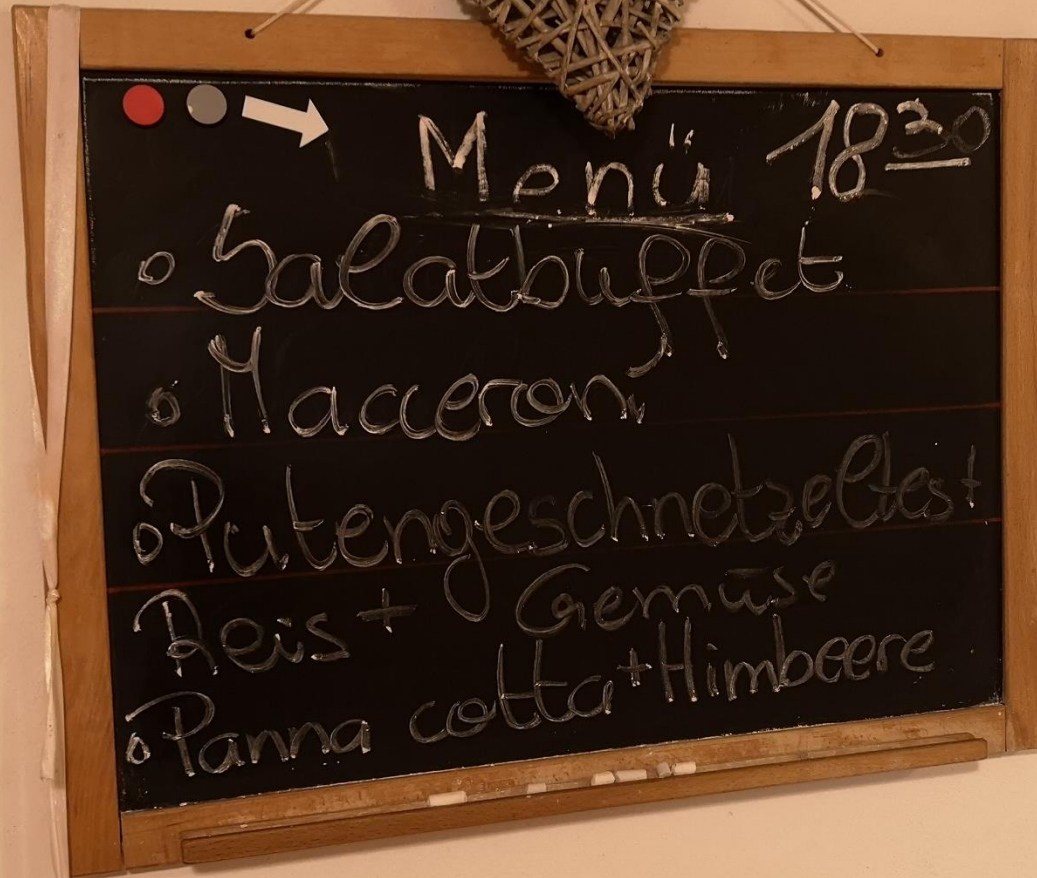 Menü 18 30
o Salatbuffet
o Macceroni
o Putengeschnetzeltes +
Reis + Gemüse
o Panna cotta + Himbeere